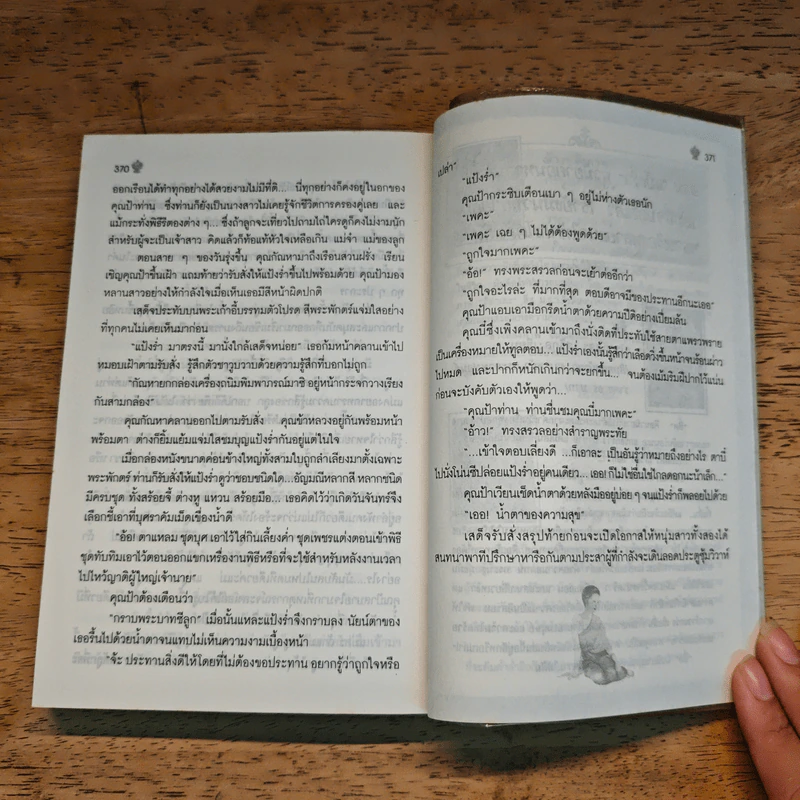 370
ออกเรือนได้ทำทุกอย่างได้สวยงามไม่มีที่ติ... นี่ทุกอย่างก็คงอยู่ในอกของ
คุณป้าท่าน ซึ่งท่านก็ยังเป็นนางสาวไม่เคยรู้จักชีวิตการครองคู่เลย และ
แม้กระทั่งพิธีรีตองต่าง ๆ... ซึ่งถ้าลูกจะเที่ยวไปถามไถ่ใครดูก็คงไม่งามนัก
สำหรับผู้จะเป็นเจ้าสาว คิดแล้วก็ท้อแท้หัวใจเหลือเกิน แม่จ๋า แม่ของลูก
ตอนสาย ๆ ของวันรุ่งขึ้น คุณกัณหามาถึงเรือนสวนฝรั่ง เรียน
เชิญคุณป้าขึ้นเฝ้า แถมท้ายว่ารับสั่งให้แป้งร่ำขึ้นไปพร้อมด้วย คุณป้ามอง
หลานสาวอย่างให้กำลังใจเมื่อเห็นเธอมีสีหน้าผิดปกติ
เสด็จประทับบนพระเก้าอี้บรรทมตัวโปรด สีพระพักตร์แจ่มใสอย่าง
ที่ทุกคนไม่เคยเห็นมาก่อน
"แป้งร่ำ มาตรงนี้ มานั่งใกล้เสด็จหน่อย" เธอก้มหน้าคลานเข้าไป
หมอบเฝ้าตามรับสั่ง รู้สึกตัวชาวูบวาบด้วยความรู้สึกที่บอกไม่ถูก
"กัณหายกกล่องเครื่องถนิมพิมพาภรณ์มาซิ อยู่หน้ากระจกวางเรียง
กันสามกล่อง"
คุณกัณหาคลานออกไปตามรับสั่ง คุณข้าหลวงอยู่กันพร้อมหน้า
พร้อมตา ต่างก็ยิ้มแย้มแจ่มใสชมบุญแป้งร่ำกันอยู่แต่ในใจ
เมื่อกล่องหนังขนาดค่อนข้างใหญ่ทั้งสามใบถูกลำเลียงมาตั้งเฉพาะ
พระพักตร์ ท่านก็รับสั่งให้แป้งร่ำดูว่าชอบชนิดใด...อัญมณีหลากสี หลากชนิด
มีครบชุด ทั้งสร้อยจี้ ต่างหู แหวน สร้อยมือ... เธอคิดไว้ว่าเกิดวันจันทร์จึง
เลือกชี้เอาที่บุศราคัมเม็ดเขื่องน้ำดี
"อ้อ! ตาแหลม ชุดบุศ เอาไว้ใส่กินเลี้ยงค่ำ ชุดเพชรแต่งตอนเข้าพิธี
ชุดทับทิมเอาไว้ตอนออกแขกเหรื่องานพิธีหรือที่จะใช้สำหรับหลังงานเวลา
ไปไหว้ญาติผู้ใหญ่เจ้านาย"
คุณป้าต้องเตือนว่า
"กราบพระบาทซีลูก" เมื่อนั้นแหละแป้งร่ำจึงกราบลง นัยน์ตาของ
เธอรื้นไปด้วยน้ำตาจนแทบไม่เห็นความงามเบื้องหน้า
"จ้ะ ประทานสิ่งดีให้โดยที่ไม่ต้องขอประทาน อยากรู้ว่าถูกใจหรือ
371
เปล่า"
"แป้งร่ำ"
คุณป้ากระซิบเตือนเบา ๆ อยู่ไม่ห่างตัวเธอนัก
"เพคะ"
"เพคะ เฉย ๆ ไม่ได้ต้องพูดด้วย"
"ถูกใจมากเพคะ"
"อ้อ!" ทรงพระสรวลก่อนจะเย้าต่ออีกว่า
"ถูกใจอะไรล่ะ ที่มากที่สุด ตอบดีอาจมีของประทานอีกนะเออ"
คุณป้าแอบเอามือกรีดน้ำตาด้วยความปีติอย่างเปี่ยมล้น
คุณบี๋ซึ่งเพิ่งคลานเข้ามาถึงนั่งติดที่ประทับใช้สายตาแพรวพราย
เป็นเครื่องหมายให้ทูลตอบ... แป้งร่ำเองนั้นรู้สึกว่าเลือดวิ่งขึ้นหน้าจนร้อนผ่าว
ไปหมด และปากก็หนักเกินกว่าจะยกขึ้น... จนต้องเม้มริมฝีปากไว้แน่น
ก่อนจะบังคับตัวเองให้พูดว่า...
"คุณป้าท่าน ท่านชื่นชมคุณบี๋มากเพคะ"
"อ้าว!" ทรงสรวลอย่างสำราญพระทัย
"...เข้าใจตอบเลี่ยงดี ...ก็เอาละ เป็นอันรู้ว่าหมายถึงอย่างไร ตาบี๋
ไปนั่งโน่นซีปล่อยแป้งร่ำอยู่คนเดียว...เออ! ก็ไม่ใช่อื่นใช่ไกลดอกนะน้าเล็ก..."
คุณป้าเวียนเช็ดน้ำตาด้วยหลังมืออยู่บ่อย ๆ จนแป้งร่ำก็พลอยไปด้วย
"เออ! น้ำตาของความสุข"
เสด็จรับสั่งสรุปท้ายก่อนจะเปิดโอกาสให้หนุ่มสาวทั้งสองได้
สนทนาพาทีปรึกษาหารือกันตามประสาผู้ที่กำลังจะเดินลอดประตูซุ้มวิวาห์